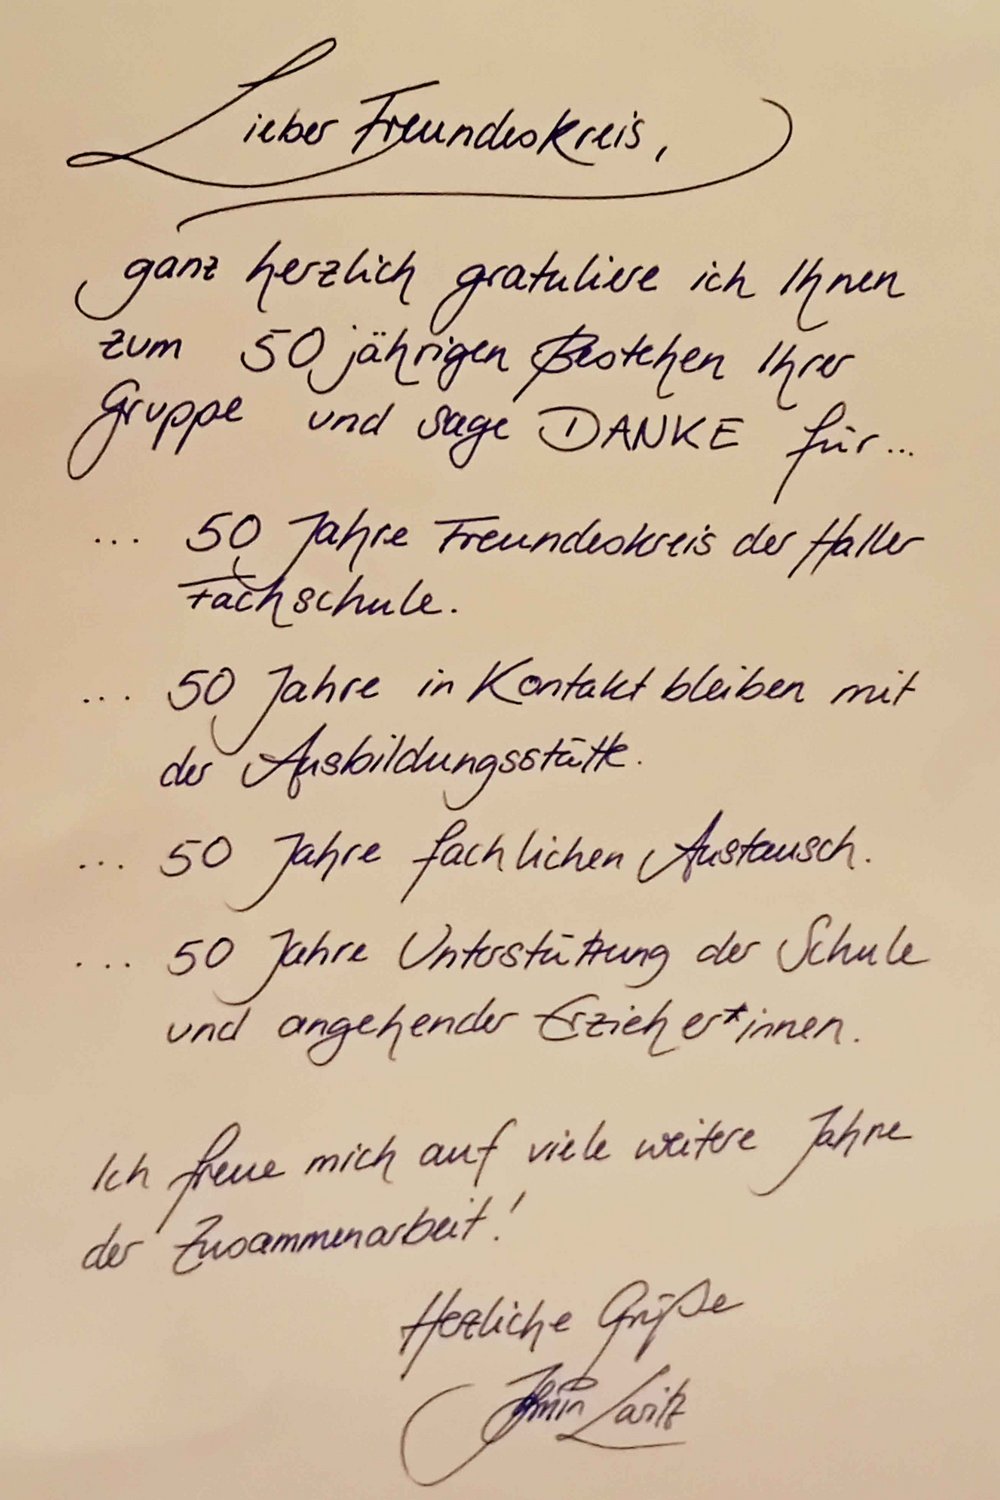 Lieber Freundeskreis,
ganz herzlich gratuliere ich Ihnen
zum 50 jährigen Bestehen Ihrer
Gruppe und sage DANKE für...
... 50 Jahre Freundeskreis der Haller
Fachschule.
... 50 Jahre in Kontakt bleiben mit
der Ausbildungsstätte.
... 50 Jahre fachlichen Austausch.
... 50 Jahre Unterstützung der Schule
und angehender Erzieher*innen.
Ich freue mich auf viele weitere Jahre
der Zusammenarbeit!
Herzliche Grüße